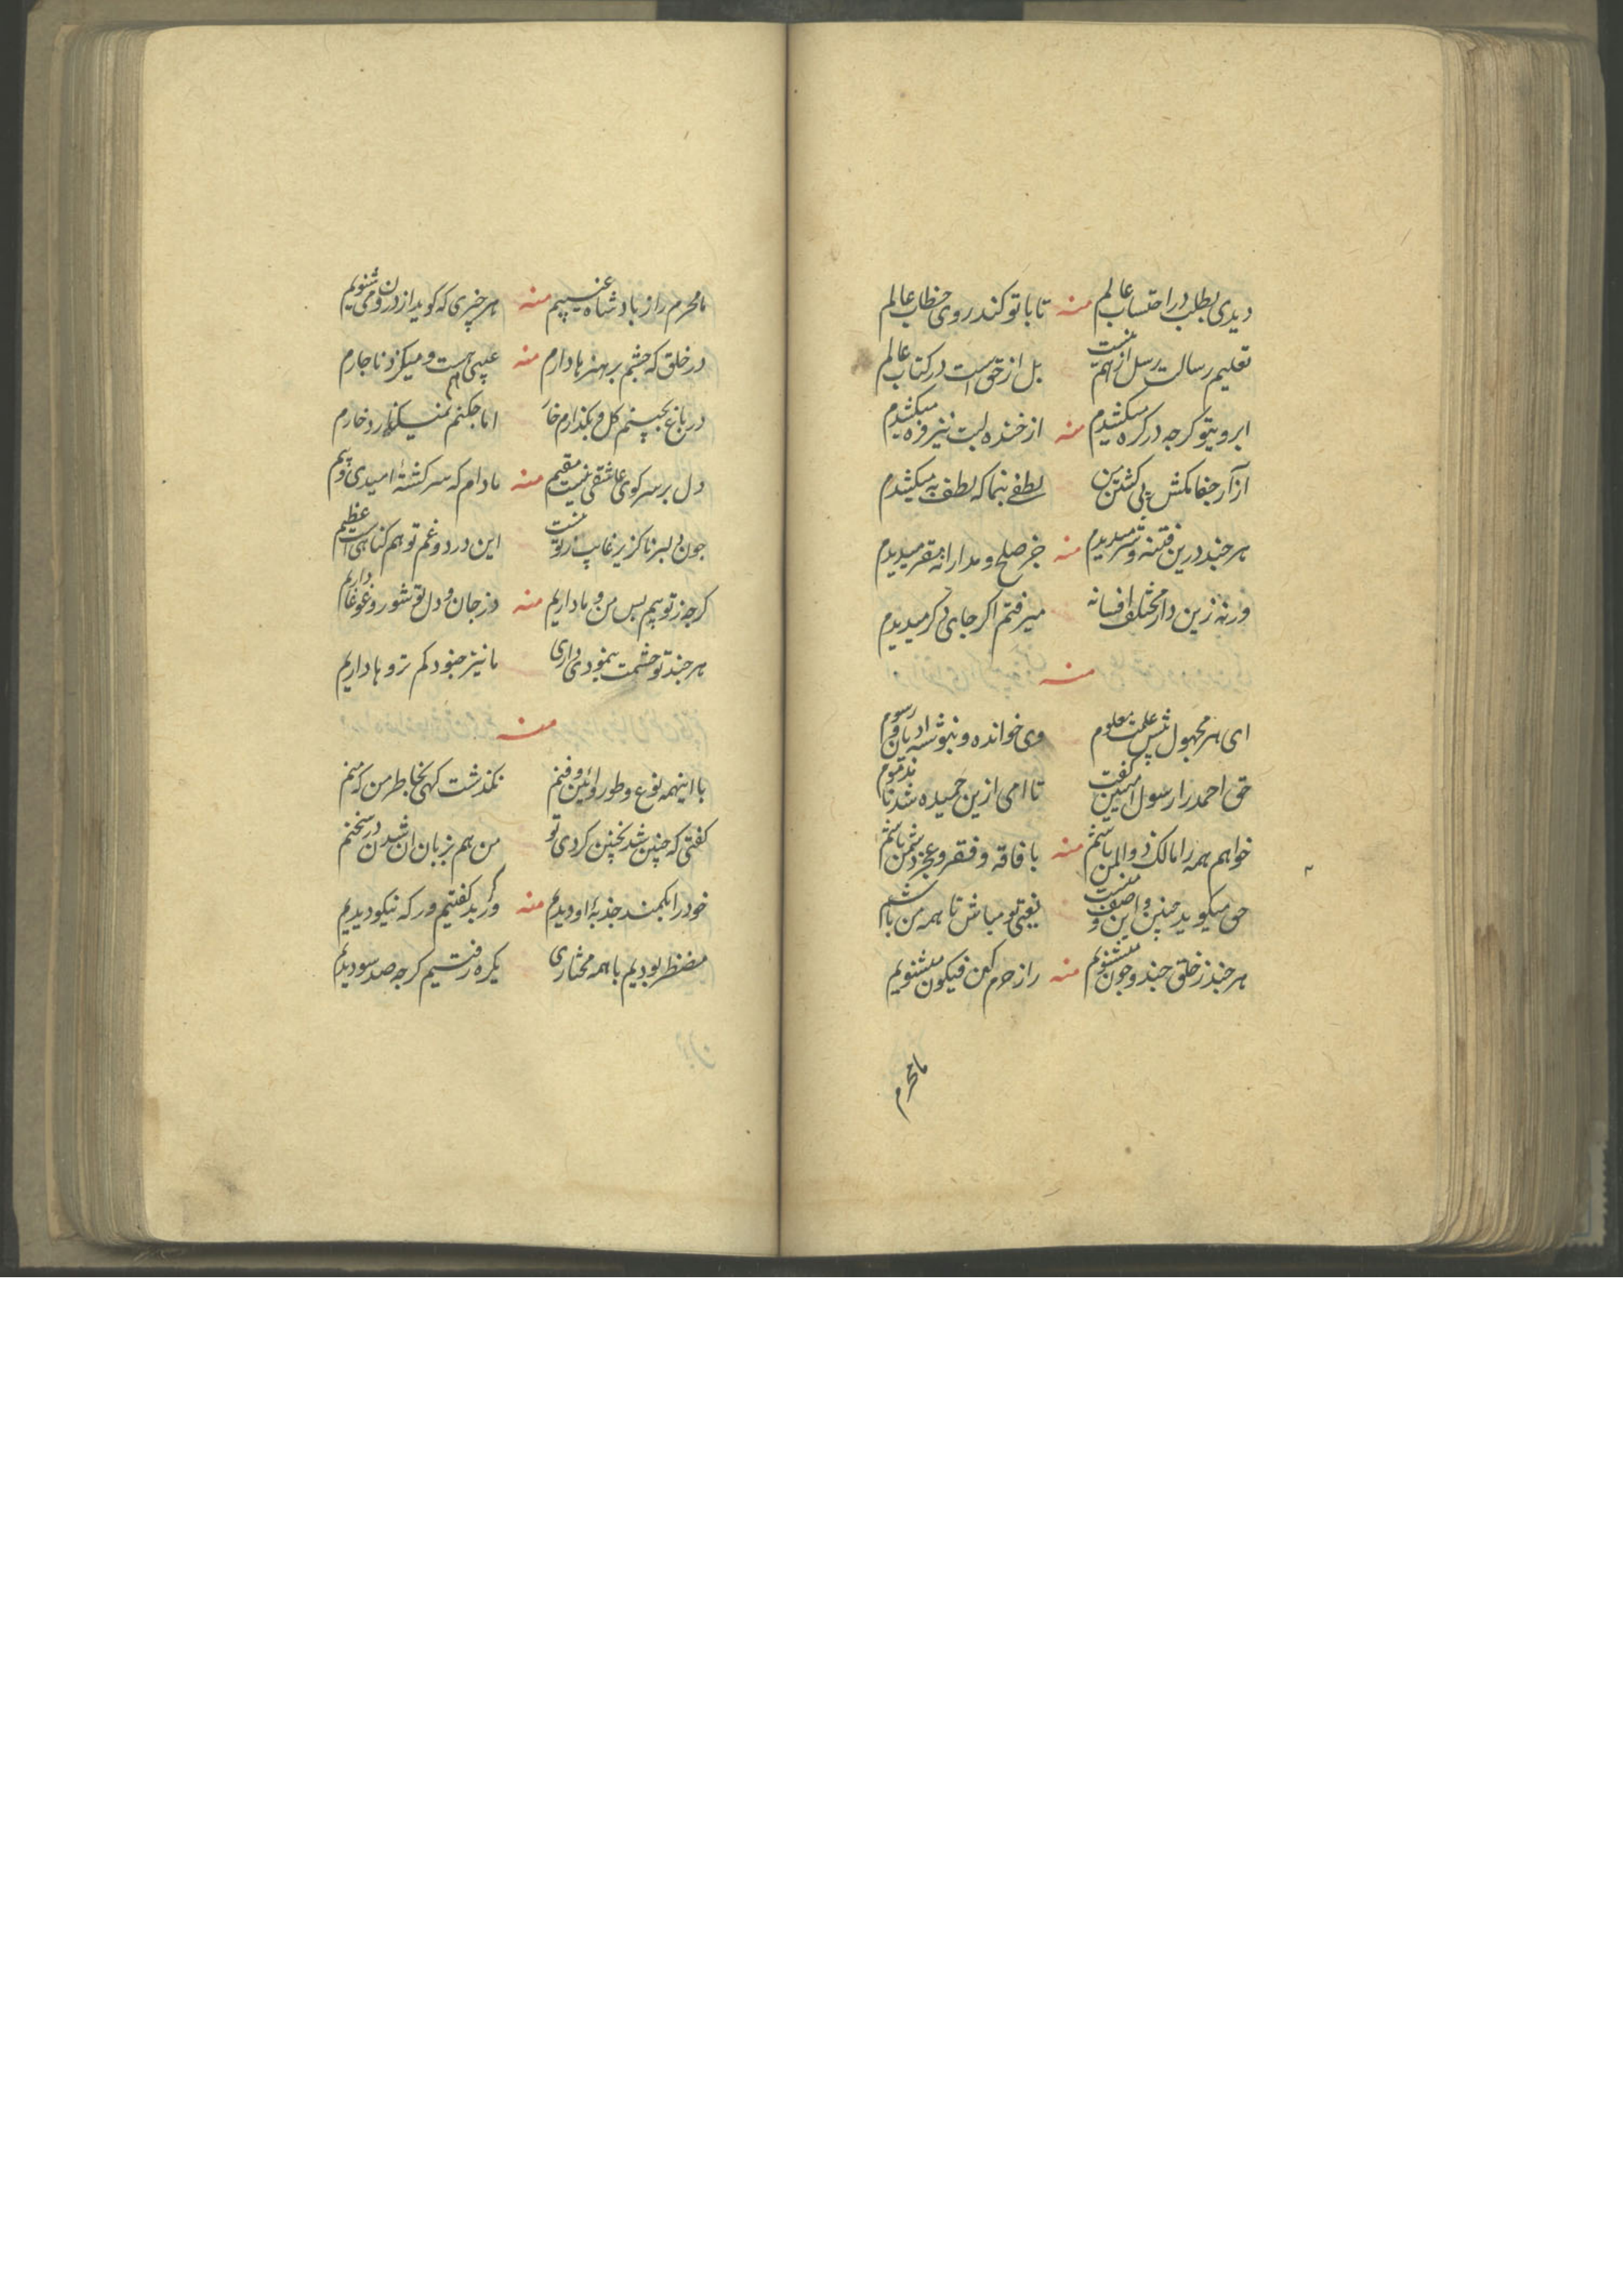 دیدی بطلب در احتساب عالم منه تا با تو کند روی خطاب عالم
تعلیم رسالت رسل از هم نیست بل از حق است در کتاب عالم
ابروی تو کرچه در کره میکشدم منه از خنده لبت نیز فره میکشدم
ازار جفا مکش پی کشتن من لطفی بنما که لطف به میکشدم
هر چند درین فتنه و شر میدیدم منه جز صلح و مدارا نه مقر میدیدم
ورنه زین دار مختلف افسانه میرفتم اکر جای دکر میدیدم
منه
ای هر مجهول پیش علمت معلوم وی خوانده و ننوشته ادیان و رسوم
حق احمد را رسول امیین کفت تا امی ازین حمیده شد نا مذموم
خواهم همه را مالک ذو المن باشم منه با فاقه و فقر و عجز دشمن باشم
حق میکوید چنین و این وصف منست یعنی تو مباش تا همه من باشم
هر چند ز خلق چند و چون میشنویم منه راز حرم کن فیکون میشنویم
ما محرم
ما محرم راز بادشاه غیبیم منه هر چیزی که کوید از درون می شنویم
در خلق که چشم بر هنرها دارم منه عیبی هم هست و میکزد ناچارم
در باغ بچینم کل و بکذارم خار اما چکنم نمیکذارد خارم
دل بر سر کوی عاشقی نیست مقیم منه مادام که سر کشتهٔ امیدی و بیم
چون دلبر ناکزیر غایب ز تو نیست این درد و غم تو هم کناهی است عظیم
کرچه ز تو بیم بس من و ما داریم منه در جان و دل تو شور و غوغا داریم
هر چند تو حشمت بنمودی داری ما نیز جنود لم تروها داریم
منه
با اینهمه نوع و طور و ائین و فنم نکذشت کهی بخاطر من که منم
کفتی که چنین شد بچنین کردی تو من هم بزبان ان شدن در سخنم
خود را بکمند جذبهٔ او دیدیم منه ور بد کفتیم ور که نیکو دیدیم
مضطر بودیم با همه مختاری یکره رفتیم کرچه صد سو دیدیم